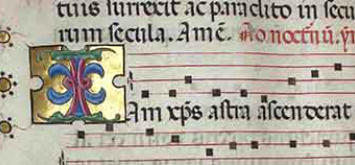 tuis surrexit ac paraclito in secu
rum secula. Amē. Ad noctnū. ym
Iam xp̄s astra ascenderat